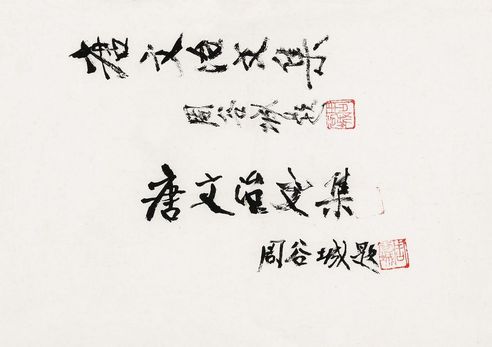 唐文治文集
周谷城题
唐文治文集
周谷城题